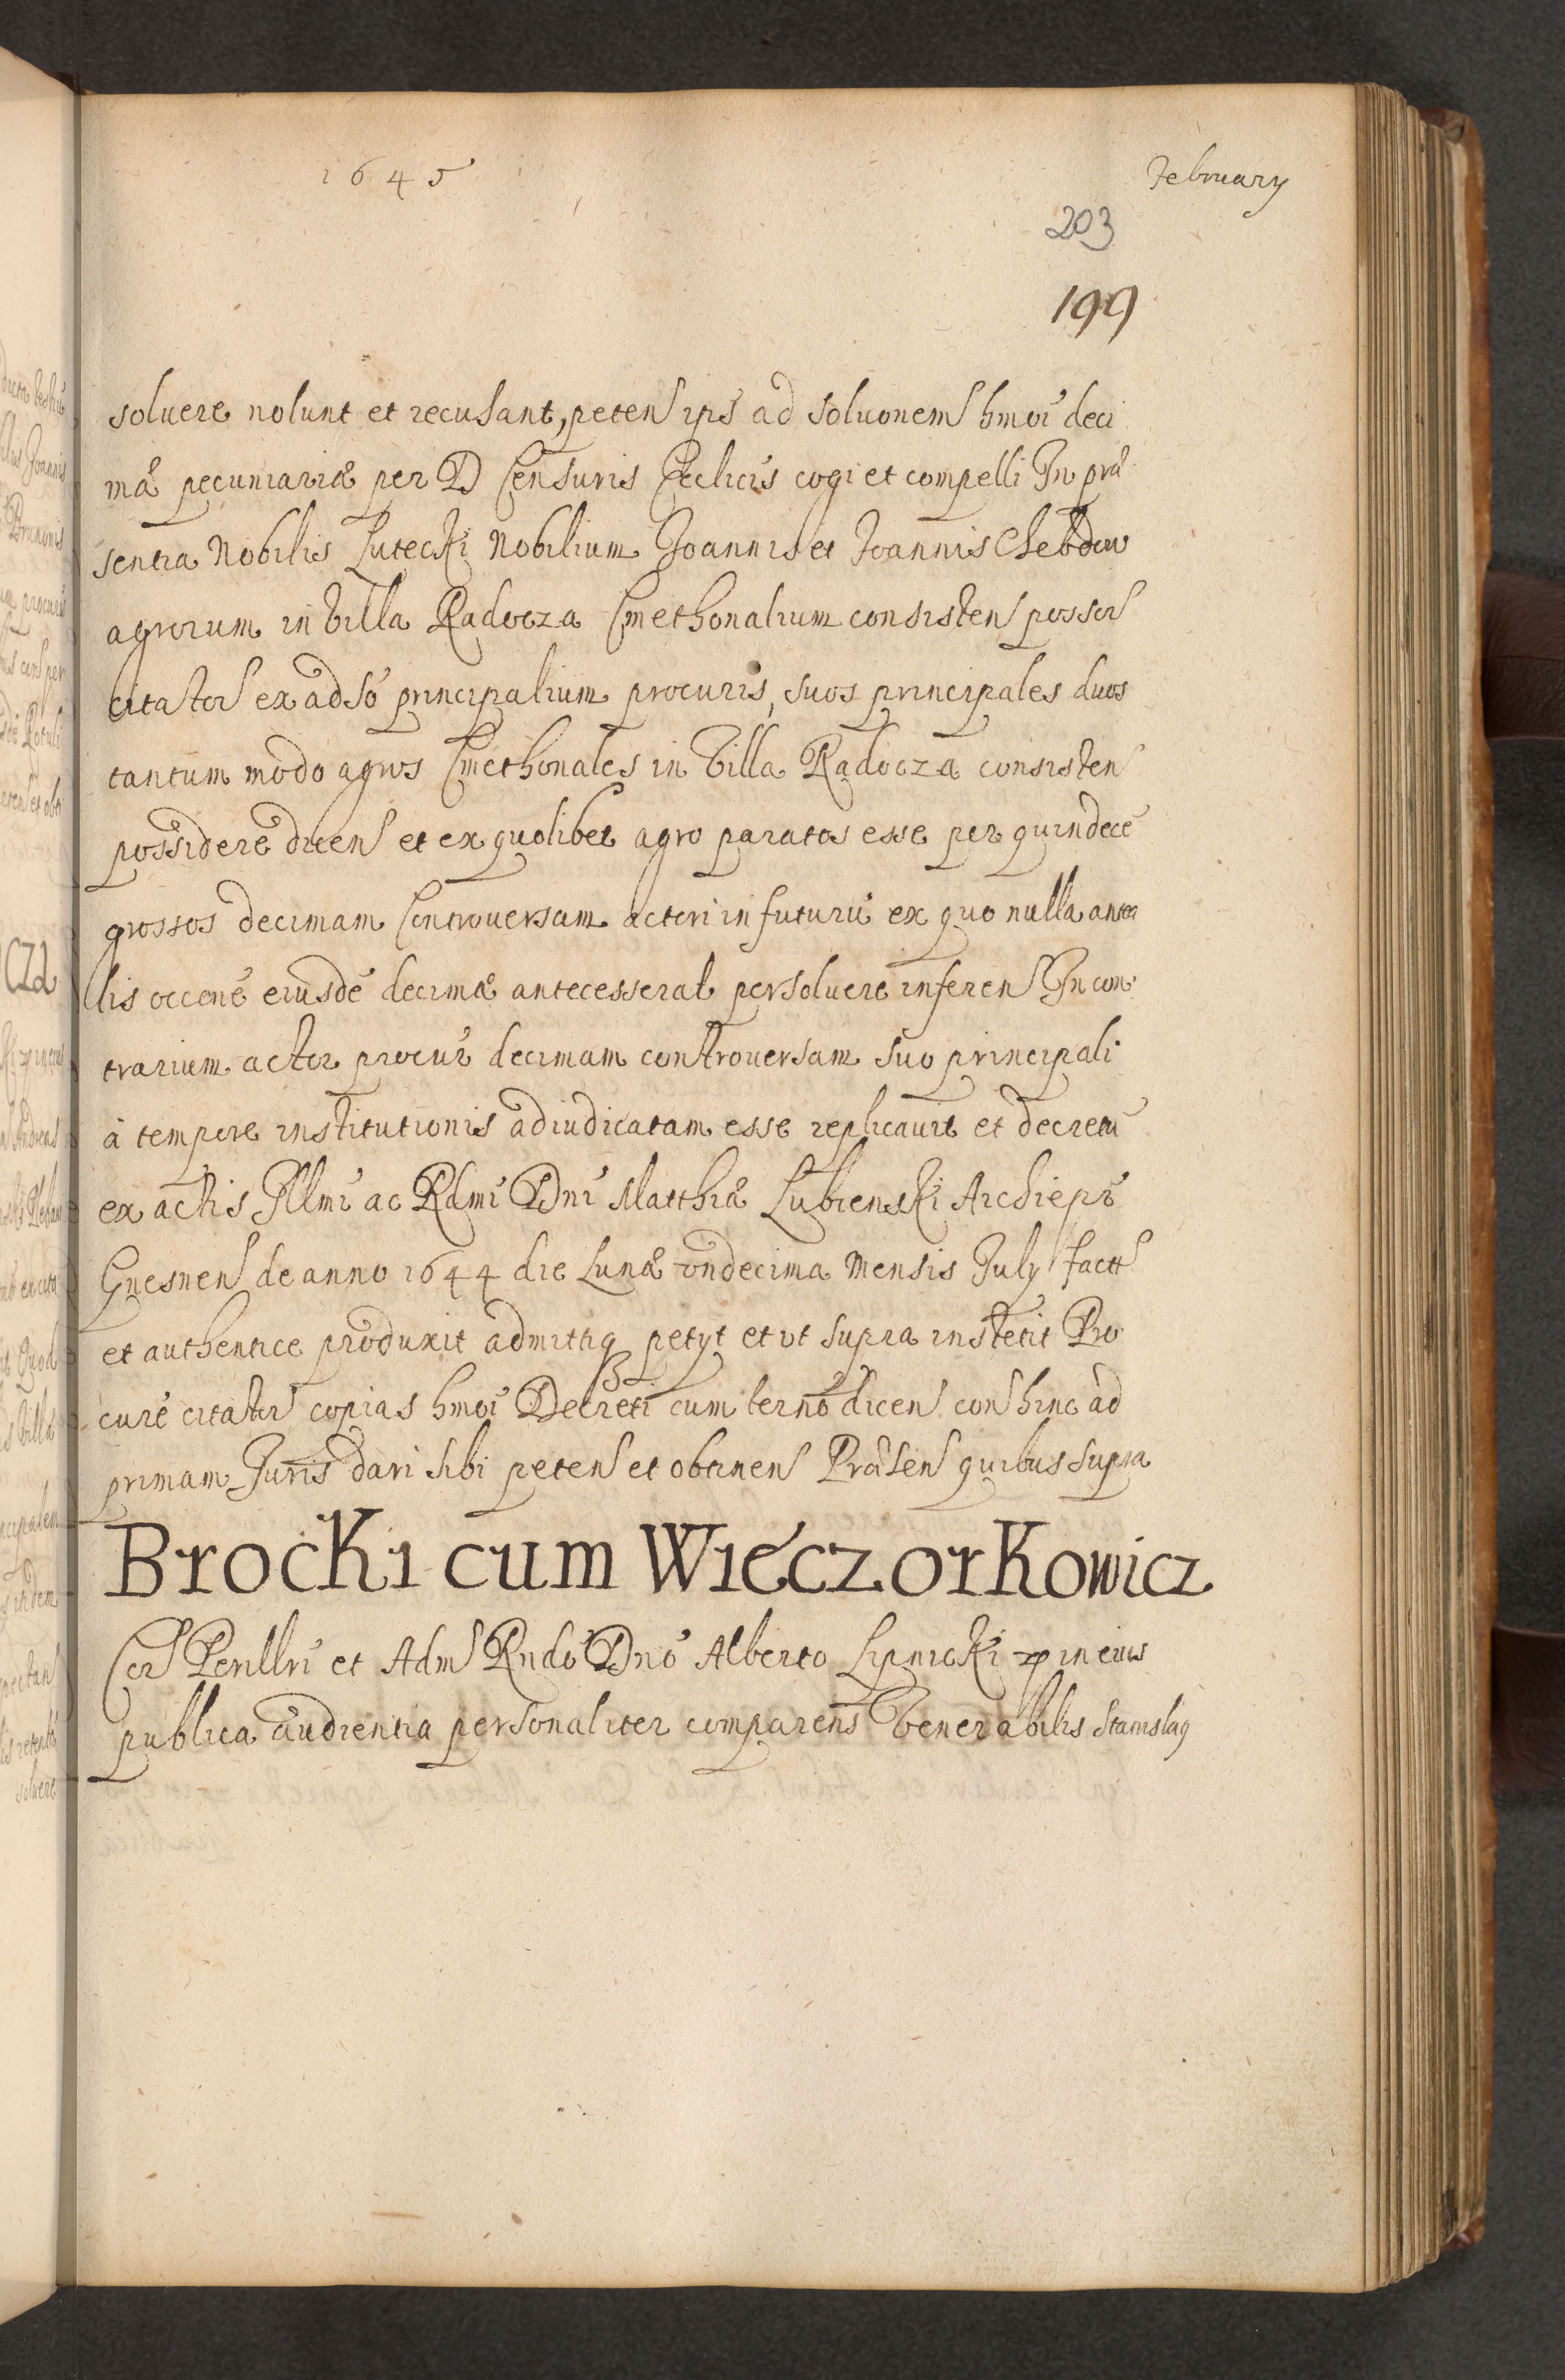 1645 February
203
199
soluere nolunt et recusant, peten ips ad soluonem hmoi deci
mæ pecuniariæ per D Censuris Ecclicis cogi et compelli In præ
sentia Nobilis Lutecki Nobilium Joannis et Joannis Chebdow
agrorum in Villa Radocza Cmethonalium consisten possor
citator ex adso principalium procuris, suos principales duos
tantum modo agros Cmethonales in Villa Radocza consisten
possidere dicen et ex quolibet agro paratos esse per quindece
grossos decimam Controuersam actori in futurū ex quo nulla antea
lis occone eiusde decimæ antecesserat persoluere inferen In con
trarium actor procur decimam controuersam suo principali
à tempore institutionis adiudicatam esse replicauit et decretū
ex actis Illmi ac Rdmi Dni Matthiæ Lubienski Archiepi
Gnesnen de anno 1644 die Lunæ vndecima Mensis July fact
et authentice produxit admittiq petyt et vt supra institit Pro
cure citator copias hmoi Decreti cum termo dicen con hinc ad
primam Juris dari sibi peten et obtinen Præsen quibus supra
Brocki cum Wieczorkowicz
Cor Perillri et Adm Rndo Dno Alberto Lipnicki in eius
publica audientia personaliter comparens Venerabilis Stanislaq